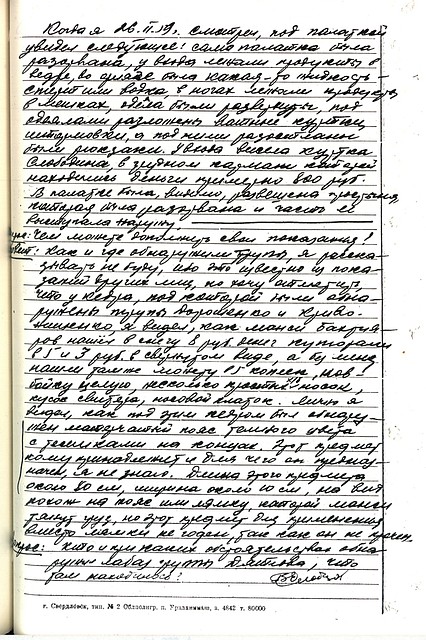 Когда я 26.II.59г. смотрел, под палаткой
увидел следующее: сама палатка была
разорвана, у входа лежали продукты в
ведре, во фляге была какая-то жидкость -
спирт или водка, в ногах лежали продукты
в мешках, одеяла были развернуты, под
одеялами разложены ватные куртки,
штормовки, а под ними разостланы
были рюкзаки. У входа висела куртка
Слободина, в карман которой
находились деньги примерно 800 руб.
В палатке была, видимо, развешена простыня,
которая была разорвана и часть её
выступала наружу.
Вопрос: Чем можете дополнить свои показания?
Ответ: Как и где обнаружили трупы, я расска-
зывать не буду, ибо это известно из пока-
заний других лиц, но хочу отметить,
что у кедра, под которым были обна-
ружены трупы Дорошенко и Криво-
нищенко, я видел, как манси Бахтия-
ров нашел в снегу 8 руб. денег купюрами
в 5 и 3 руб. в свернутом виде, а мы
нашли там же монету 15 копеек, ков-
бойку целую, несколько простых носков,
кусок свитера, носовой платок. Лично я
видел, как под этим кедром был обнару-
жен матерчатый пояс темного цвета
с тесемками на концах. Этот предмет
кому принадлежит и для чего он предназ-
начен, я не знаю. Длина этого предмета
около 80 см, ширина около 10 см, на вид
похож на пояс или лямку, которой манси
тянут груз, но этот предмет для применения
вместо лямки не годен, так как он не прочен.
Вопрос: Кто и при каких обстоятельствах обна-
ружил лабаз группы Дятлова, что
там находилось?
г. Свердловск, тип. № 2 Облполигр. п. Уралхиммаш, з. 4642 т. 80000